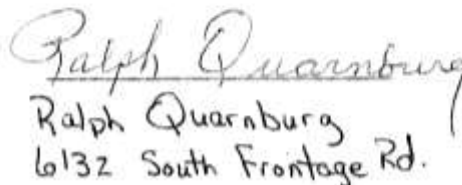 Ralph Quarnburg
Ralph Quarnburg
6132 South Frontage Rd.